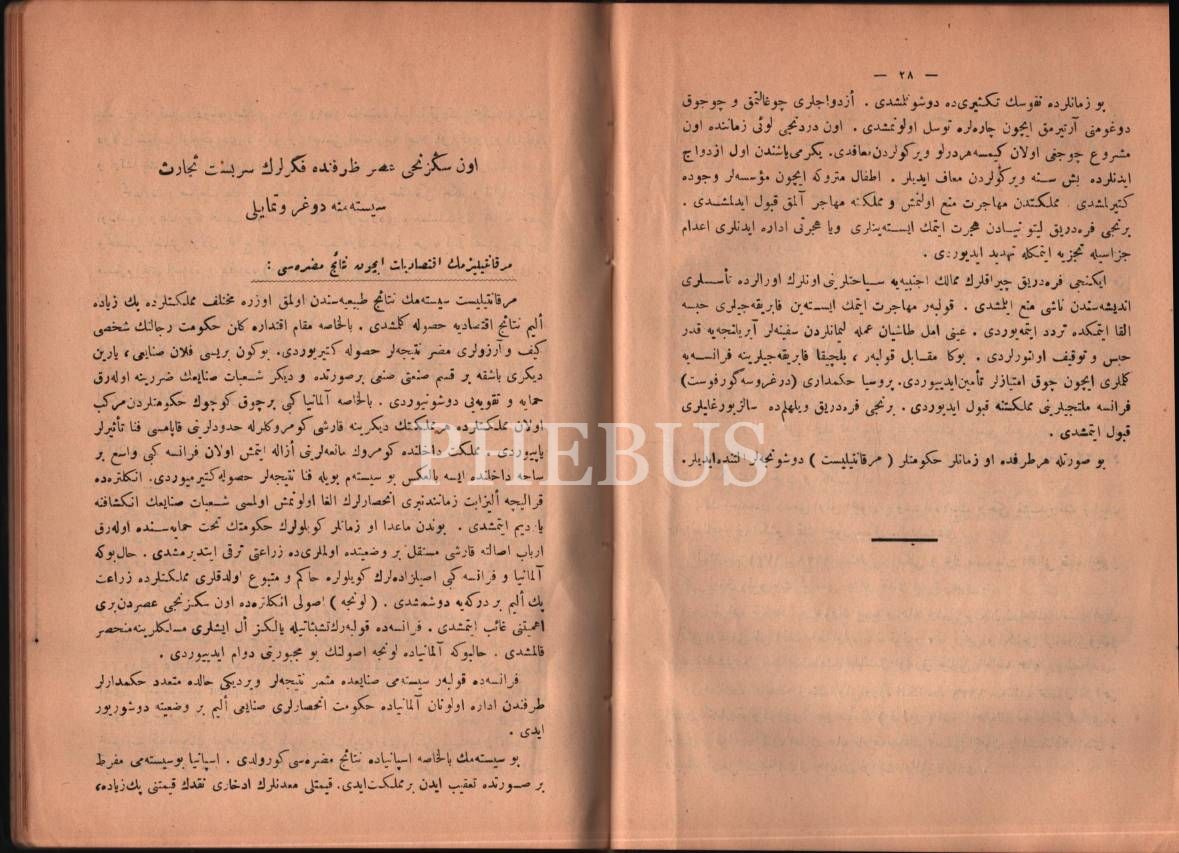 — ٢٨ —
بو زمانلرده نفوسك تكثيری‌ده دوشونلمشدی . ازدواجلری چوغالتمق و چوجوق
دوغومنی آرتيرمق ايچون چاره‌لره توسل اولونمشدی . اون دردنجی لوئی زماننده اون
مشروع چوجغی اولان كيمسه هردرلو ويركولردن معافدی. يكرمی ياشندن اول ازدواج
ايدنلرده بش سنه ويركولردن معاف ايديلر . اطفال متروكه ايچون مؤسسه‌لر وجوده
كتيرلمشدی . مملكتدن مهاجرت منع اولنمش و مملكته مهاجر آلمق قبول ايدلمشدی .
برنجی فره‌دريق ليتوانيادن هجرت ايتمك ايسته‌ينلری ويا هجرتی اداره ايدنلری اعدام
جزاسيله تجزيه ايتمكله تهديد ايديوردی .
ايكنجی فره‌دريق چيراقلرك ممالك اجنبيه‌يه سياحتلرينی اونلرك اورالرده تأسسلری
انديشه‌سندن ناشی منع ايتمشدی . قولبه‌ر مهاجرت ايتمك ايسته‌ين فابريقه‌جيلری حبسه
القا ايتمكده تردد ايتمه‌يوردی . عينی امل طاشيان عمله ليمانلردن سفينه‌لر آيريلنجه‌يه قدر
حبس و توقيف اولنورلردی . بوكا مقابل قولبه‌ر ، بلچيقا فابريقه‌جيلرينه فرانسه‌يه
كلملری ايچون چوق امتيازلر تأمين ايدييوردی. پروسيا حكمداری (درغروسه كورفوست)
فرانسه ملتجيلرينی مملكتنه قبول ايديوردی . برنجی فره‌دريق ويلهلم‌ده سالزبورغليلری
قبول ايتمشدی .
بو صورتله هر طرفده او زمانلر حكومتلر ( مرقانتيليست ) دوشونجه‌لر آلتنده‌ايديلر.
اون سكزنجی عصر ظرفنده فكرلرك سربست تجارت
سيسته‌منه دوغرو تمايلی
مرقانتيليزمك اقتصاديات ايچون نتائج مضره‌سی :
مرقانتيليست سيسته‌مك نتائج طبيعيه‌سندن اولمق اوزره مختلف مملكتلرده پك زياده
أليم نتائج اقتصاديه حصوله كلمشدی . بالخاصه مقام اقتداره كلن حكومت رجالنك شخصی
كيف و آرزولری مضر نتيجه‌لر حصوله كتيريوردی. بوكون بريسی فلان صنايعی ، يارين
ديكری باشقه بر قسم صنعتی صنعی برصورتده و ديكر شعبات صنايعك ضررينه اوله‌رق
حمايه و تقويه‌يی دوشونيوردی . بالخاصه آلمانيا كبی برچوق كوچوك حكومتلردن مركب
اولان مملكتلرده هر مملكتك ديكرينه قارشی كومروكلرله حدودلرينی قاپامسی فنا تأثيرلر
ياپيوردی . مملكت داخلنده كومروك مانعه‌لرينی ازاله ايتمش اولان فرانسه كبی واسع بر
ساحه داخلنده ايسه بالعكس بو سيسته‌م بويله فنا نتيجه‌لر حصوله كتيرميوردی. انكلتره‌ده
قراليچه أليزابت زمانندنبری انحصارلرك الغا اولونمش اولمسی شعبات صنايعك انكشافنه
ياردیم ايتمشدی . بوندن ماعدا او زمانلر كويلولرك حكومتك تحت حمايه‌سنده اوله‌رق
ارباب اصالته قارشی مستقل بر وضعيتده اولملری‌ده زراعتی ترقی ايتديرمشدی . حال‌بوكه
آلمانيا و فرانسه كبی اصيلزاده‌لرك كويلولره حاكم و متبوع اولدقلری مملكتلرده زراعت
پك أليم بر دركه‌يه دوشمشدی . ( لونجه ) اصولی انكلتره‌ده اون سكزنجی عصردن‌بری
اهميتنی غائب ايتمشدی . فرانسه‌ده قولبه‌رك تشبثاتيله يالكز أل ايشلری مسلكلرينه منحصر
قالمشدی . حالبوكه آلمانياده لونجه اصولنك بو مجبوريتی دوام ايدييوردی .
فرانسه‌ده قولبه‌ر سيسته‌می صنايعده مثمر نتيجه‌لر ويرديكی حالده متعدد حكمدارلر
طرفندن اداره اولونان آلمانياده حكومت انحصارلری صنايعی أليم بر وضعيته دوشوريور
ايدی .
بو سيسته‌مك بالخاصه اسپانياده نتائج مضره‌سی كورولدی . اسپانيا بوسيسته‌می مفرط
بر صورتده تعقيب ايدن بر مملكت ايدی. قيمتلی معدنلرك ادخاری نقدك قيمتنی پك زياده،
PHEBUS